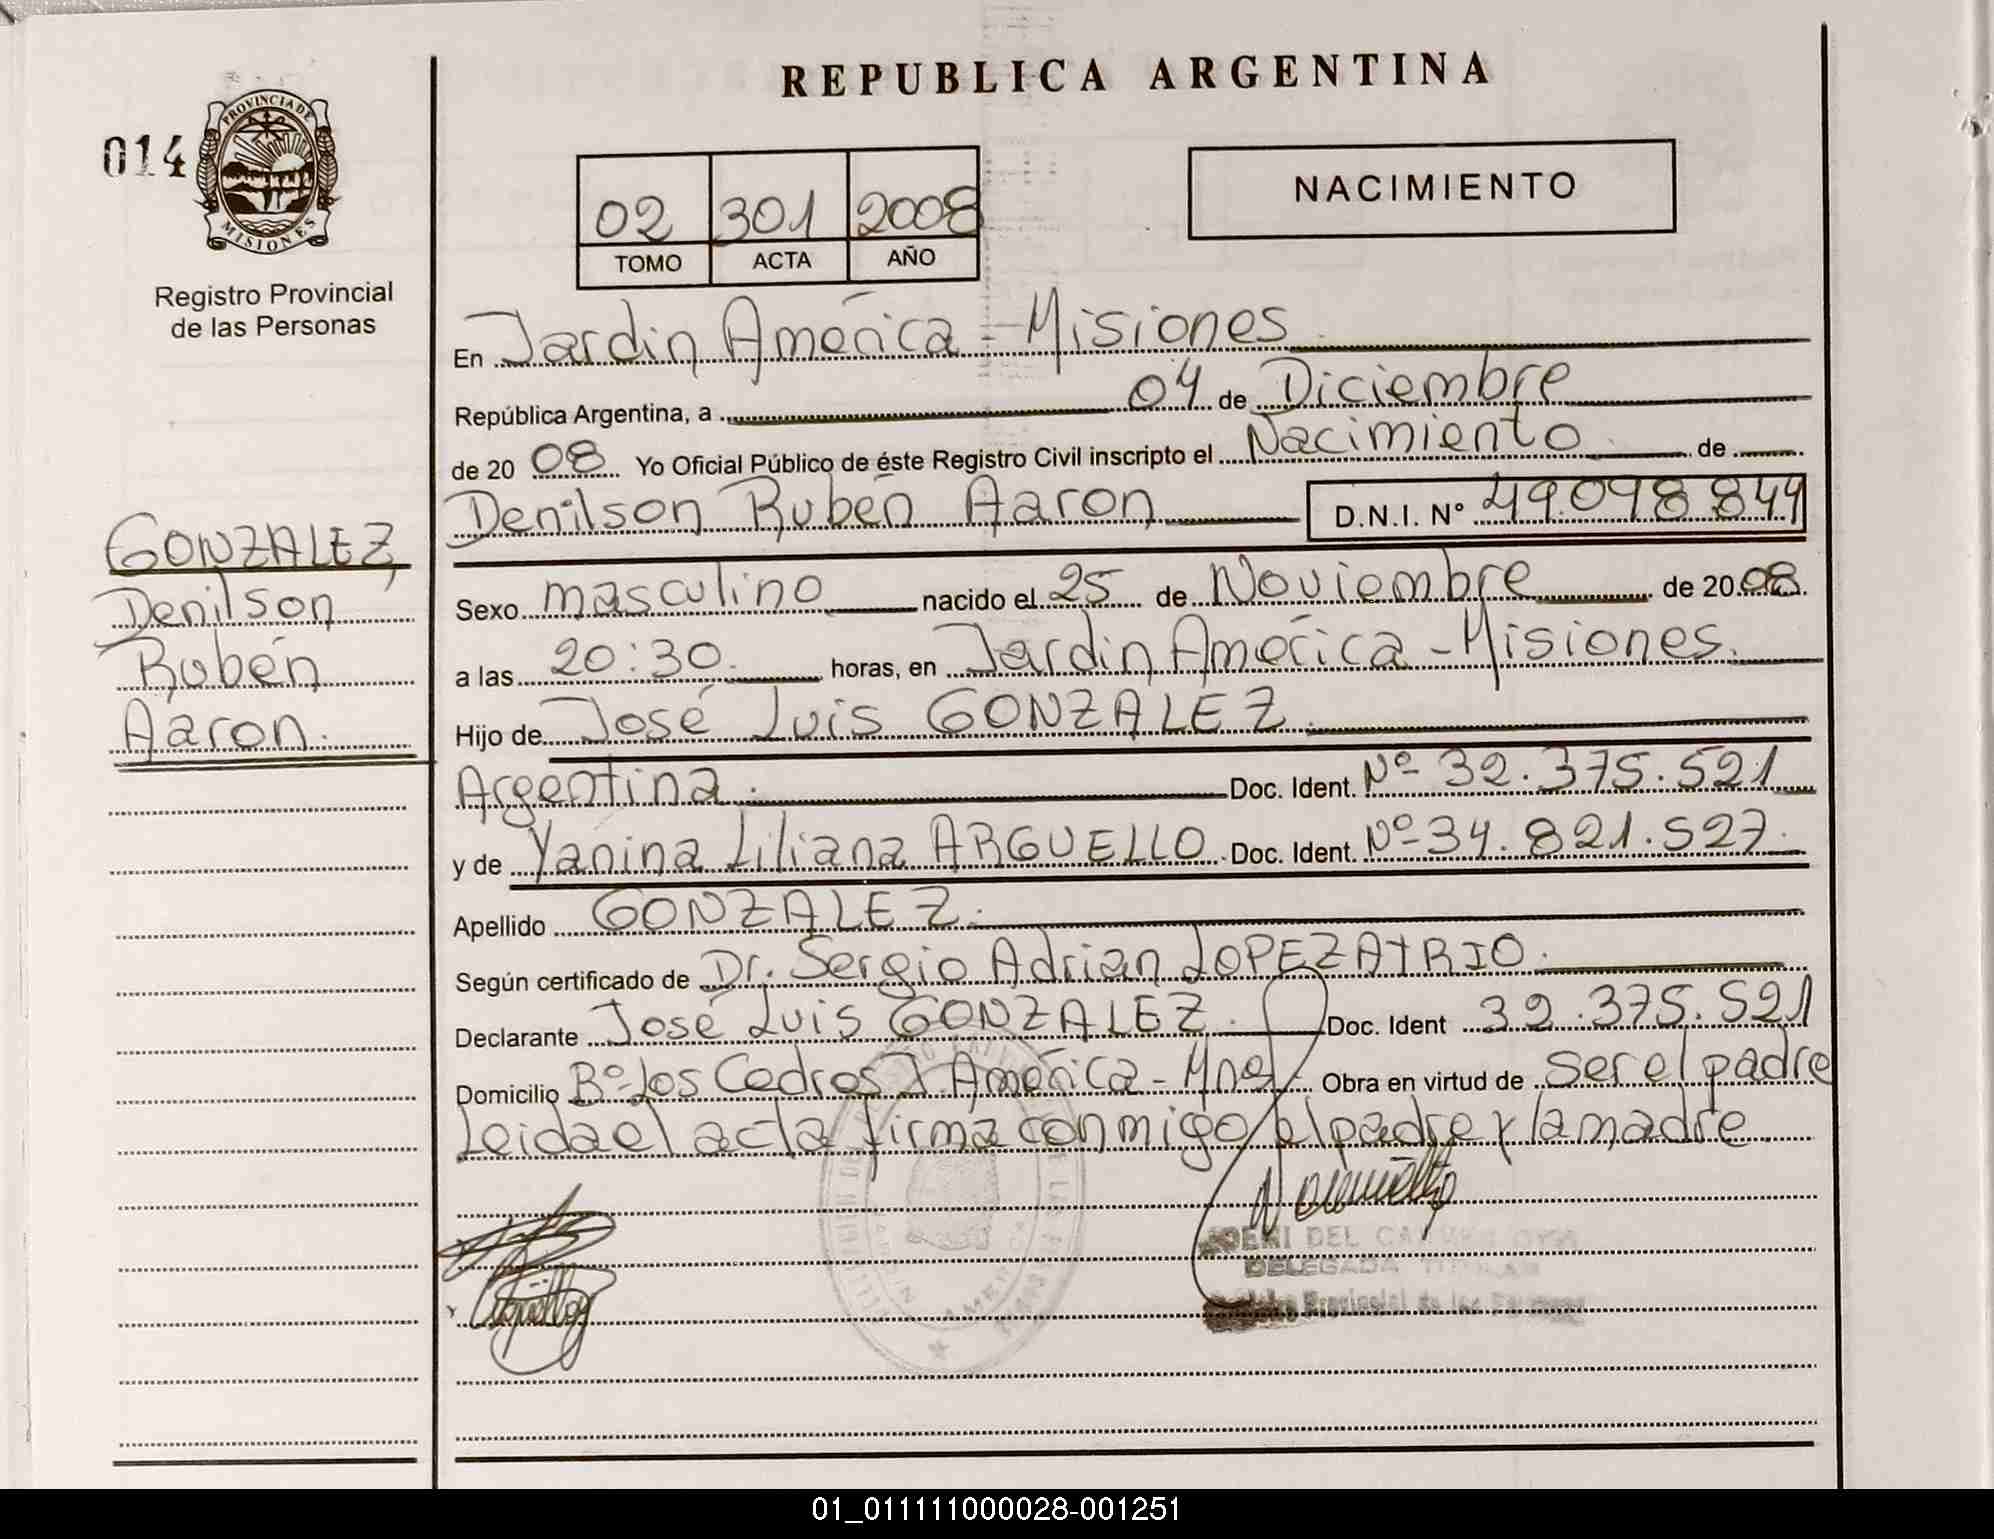 REPUBLICA ARGENTINA
014
PROVINCIA DE
MISIONES
Registro Provincial
de las Personas
02 301 2008
TOMO ACTA AÑO
NACIMIENTO
En Jardín América - Misiones
República Argentina, a 04 de Diciembre
de 20 08 Yo Oficial Público de éste Registro Civil inscripto el Nacimiento de
Denilson Rubén Aaron D.N.I. Nº 49.098.844
GONZALEZ,
Denilson
Rubén
Aaron.
Sexo masculino nacido el 25 de Noviembre de 2008.
a las 20:30. horas, en Jardín América - Misiones.
Hijo de José Luis GONZALEZ
Argentina. Doc. Ident. Nº 32.375.521
y de Yanina Liliana ARGUELLO Doc. Ident. Nº 34.821.527.
Apellido GONZALEZ.
Según certificado de Dr. Sergio Adrian LOPEZATRIO.
Declarante José Luis GONZALEZ. Doc. Ident 32.375.521
Domicilio Bº Los Cedros J. América - Mnes Obra en virtud de ser el padre
Leida el acta firma conmigo el padre y la madre
DEL
DELEGADA TITULAR
Provincial de las Personas
01_011111000028-001251